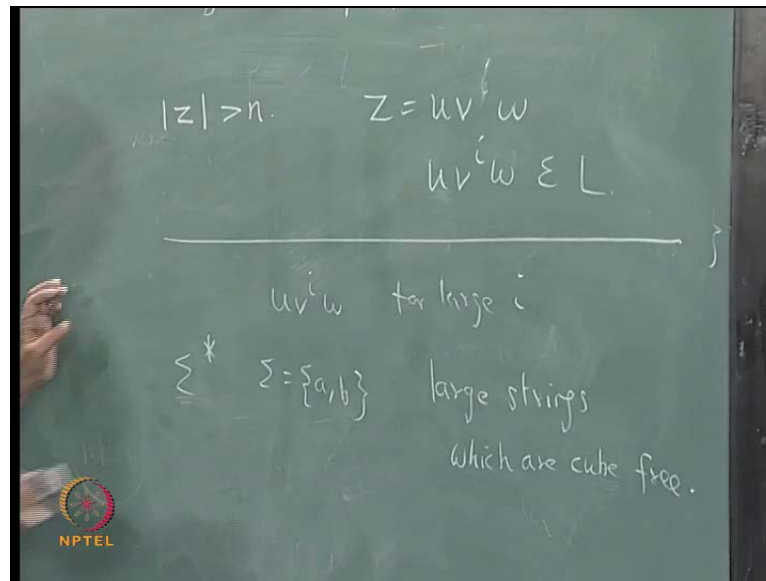 |z| > n. z = uv^i w
uv^i w ε L.
uv^i w for large i
Σ* Σ = {a, b} large strings
which are cube free.
NPTEL